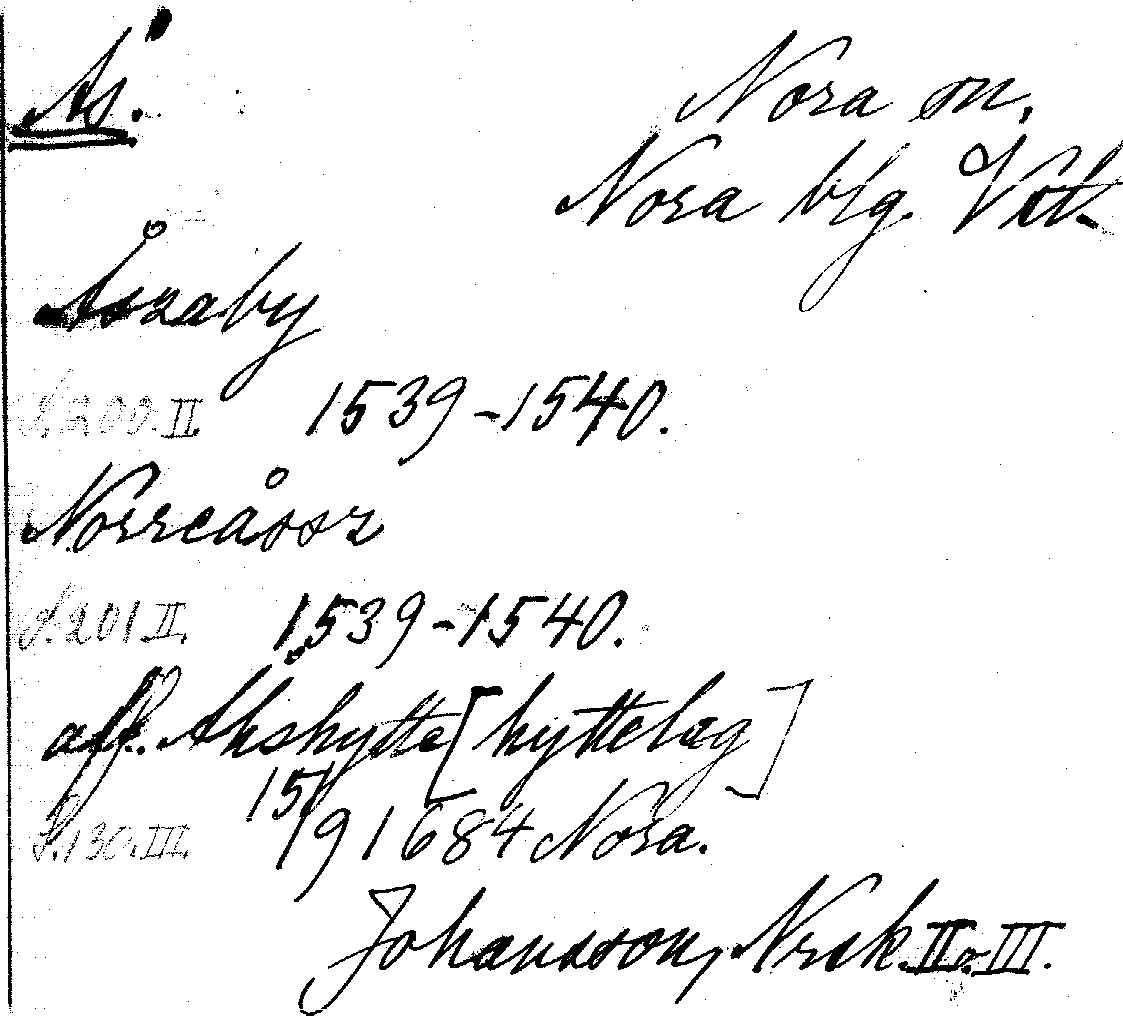 Ås.
Nora sn,
Nora blg. Vstl.
Åszaby
S. 200. II. 1539-1540.
Norreåssz
S. 201 II. 1539-1540.
aff. Åhshytte [hyttelag]
S. 130. III. 15/9 1684 Nora.
Johansson, Nrsk. II o. III.